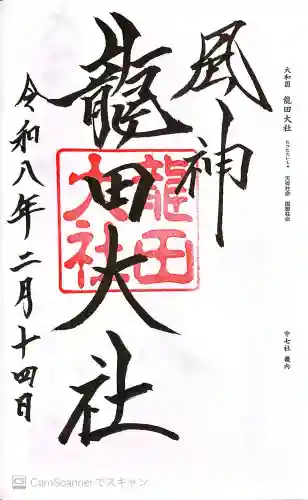 大和国 龍田大社 たつたたいしゃ
中七社 畿内
風神
龍田大社
龍田
大社
令和八年二月十四日
CamScannerでスキャン